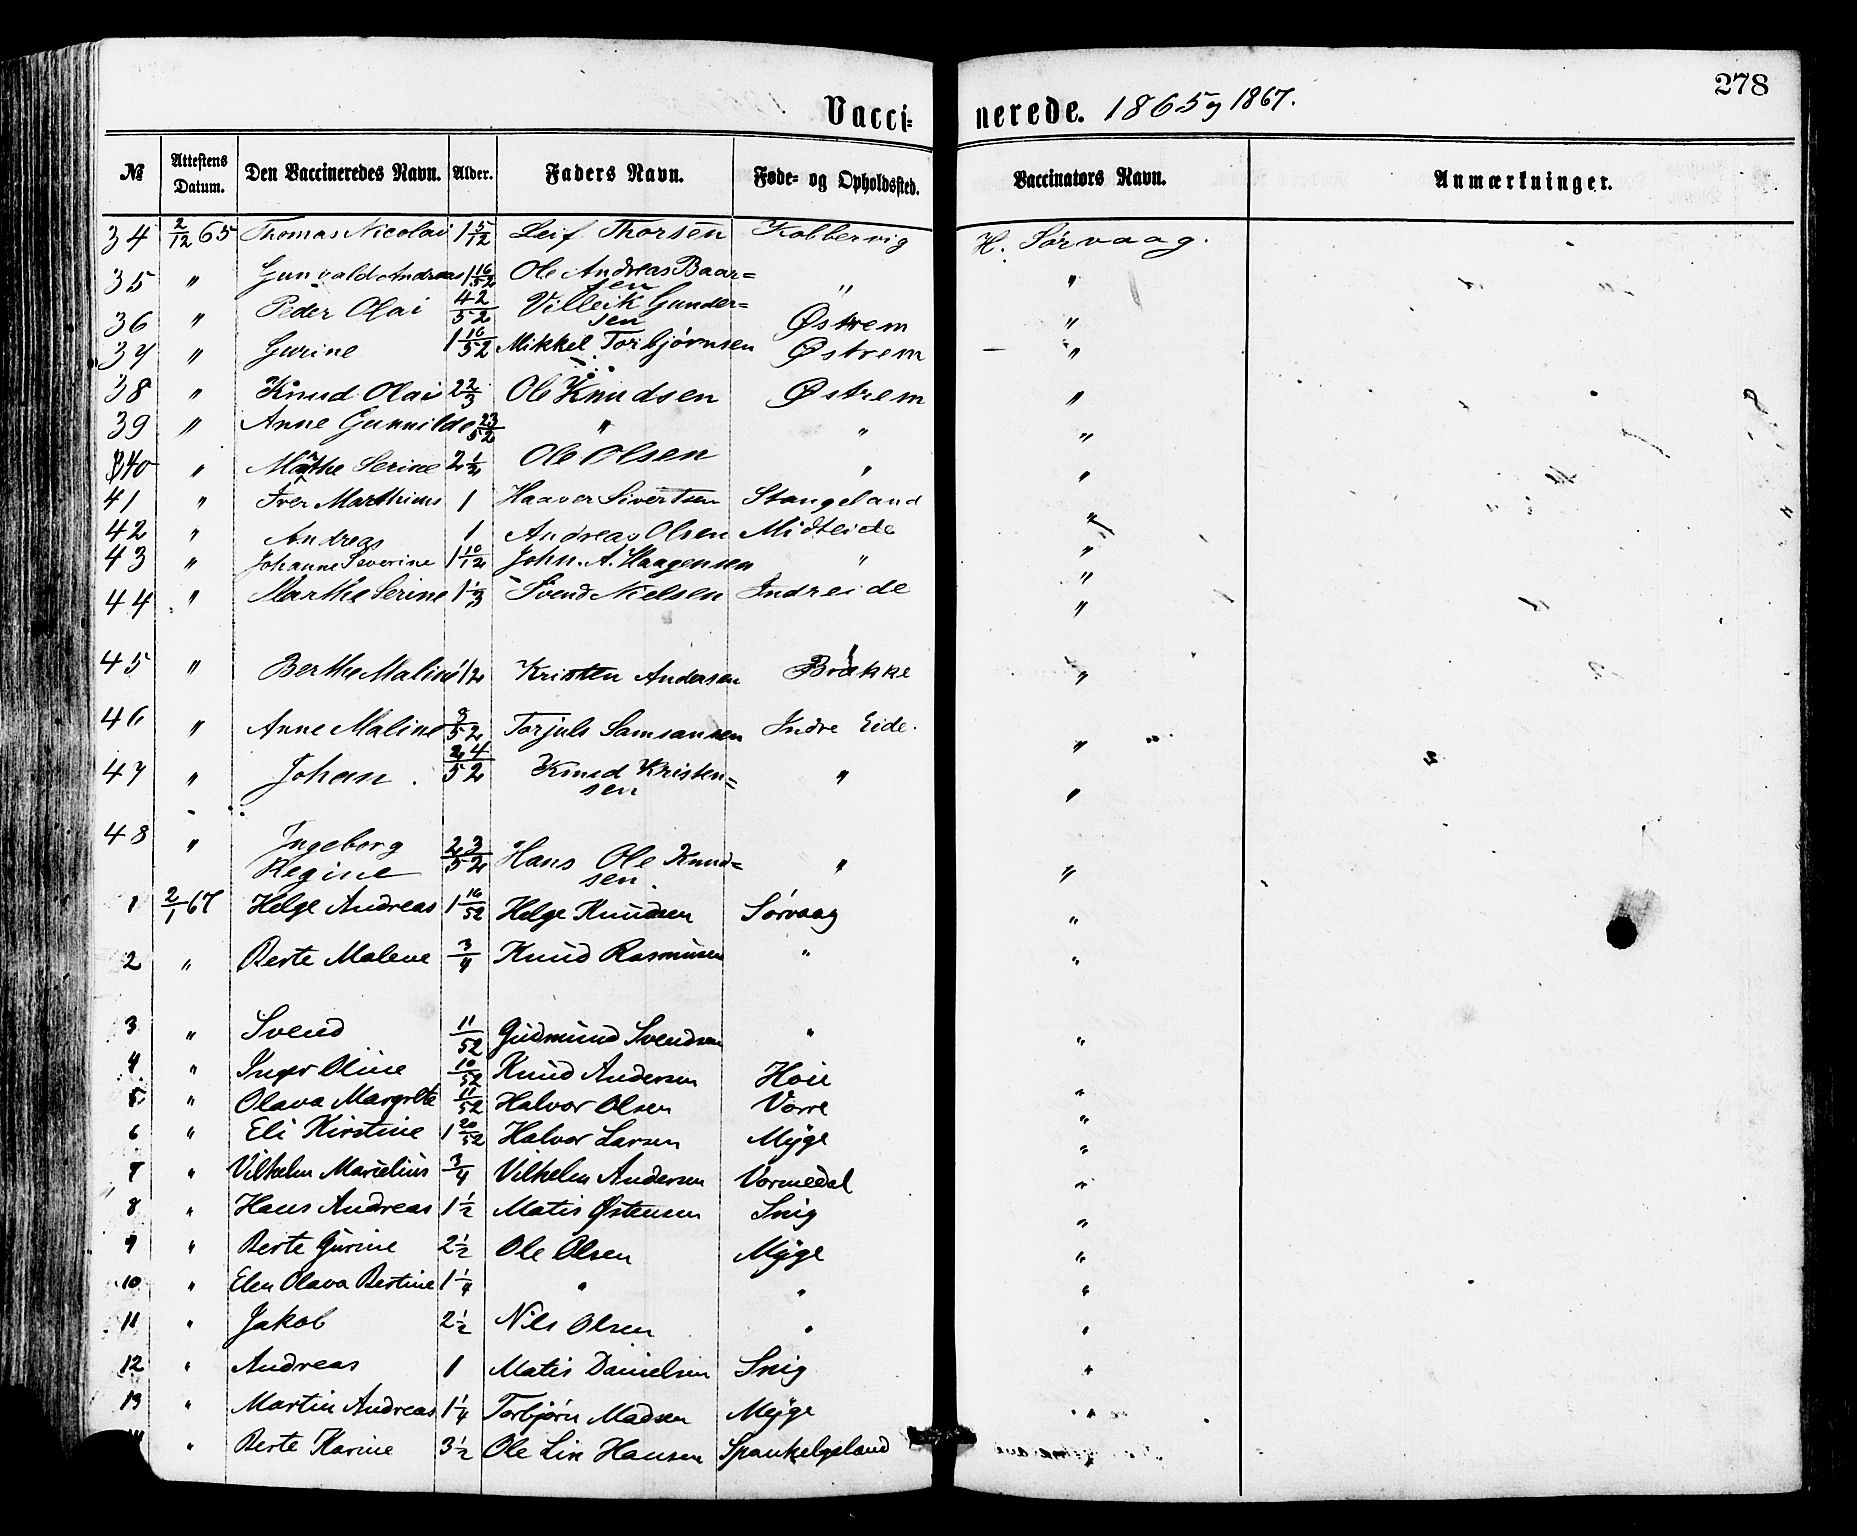 278
Vaccinerede. 1865 og 1867.
№ Attestens Datum. Den Vaccineredes Navn. Alder. Faders Navn. Føde- og Opholdssted. Vaccinators Navn. Anmærkninger.
34 2/12 65 Thomas Nicolai 1 5/12 Leif Thorsen Kobbervig H. Sørvaag.
35 " Gunvald Andreas 1 16/52 Ole Andreas Baar=
sen " "
36 " Peder Olai 42/52 Villeik Gunder=
sen Østrem "
37 " Gurine 1 16/52 Mikkel Torbjørnsen Østrem "
38 " Knud Olai 2 2/3 Ole Knudsen Østrem "
39 " Anne Gunnilde 23/52 " " "
40 " Marthe Serine 2 1/2 Ole Olsen " "
41 " Iver Marthinus 1 Haaver Sivertsen Stangeland "
42 " Andreas 1 Andreas Olsen Midteide "
43 " Johanne Severine 1 10/12 John. A. Haagensen " "
44 " Marthe Serine 1 1/3 Svend Nielsen Indreide "
45 " Berthe Maline 1/2 Kristen Andersen Brække "
46 " Anne Maline 9/52 Torjuls Samsonsen Indre Eide. "
47 " Johan. 24/52 Knud Kristen=
sen " "
48 " Ingeborg
Regine 23/52 Hans Ole Knud=
sen. " "
1 2/1 67 Helge Andreas 1 16/52 Helge Knudsen Sørvaag "
2 " Berte Malene 3/4 Knud Rasmusen " "
3 " Svend 11/52 Gudmund Svendsen " "
4 " Inger Oline 10/52 Knud Andersen Høie "
5 " " Olava Margrete 11/52 Halvor Olsen Vorre "
6 " Eli Kirstine 1 20/52 Halvor Larsen Myge "
7 " Vilhelm Marselius 3/4 Vilhelm Andersen Vormedal "
8 " Hans Andreas 1 1/2 Matis Østensen Snig "
9 " Berte Gurine 2 1/2 Ole Olsen Myge "
10 " Elen Olava Bertine 1 1/4 " " "
11 " Jakob 2 1/2 Nils Olsen " "
12 " Andreas 1 Matis Danielsen Snig "
13 " Martin Andreas 1 1/4 Torbjørn Madsen Myge "
" Berte Karine 3 1/2 Ole Lin Hansen Spankelgsland